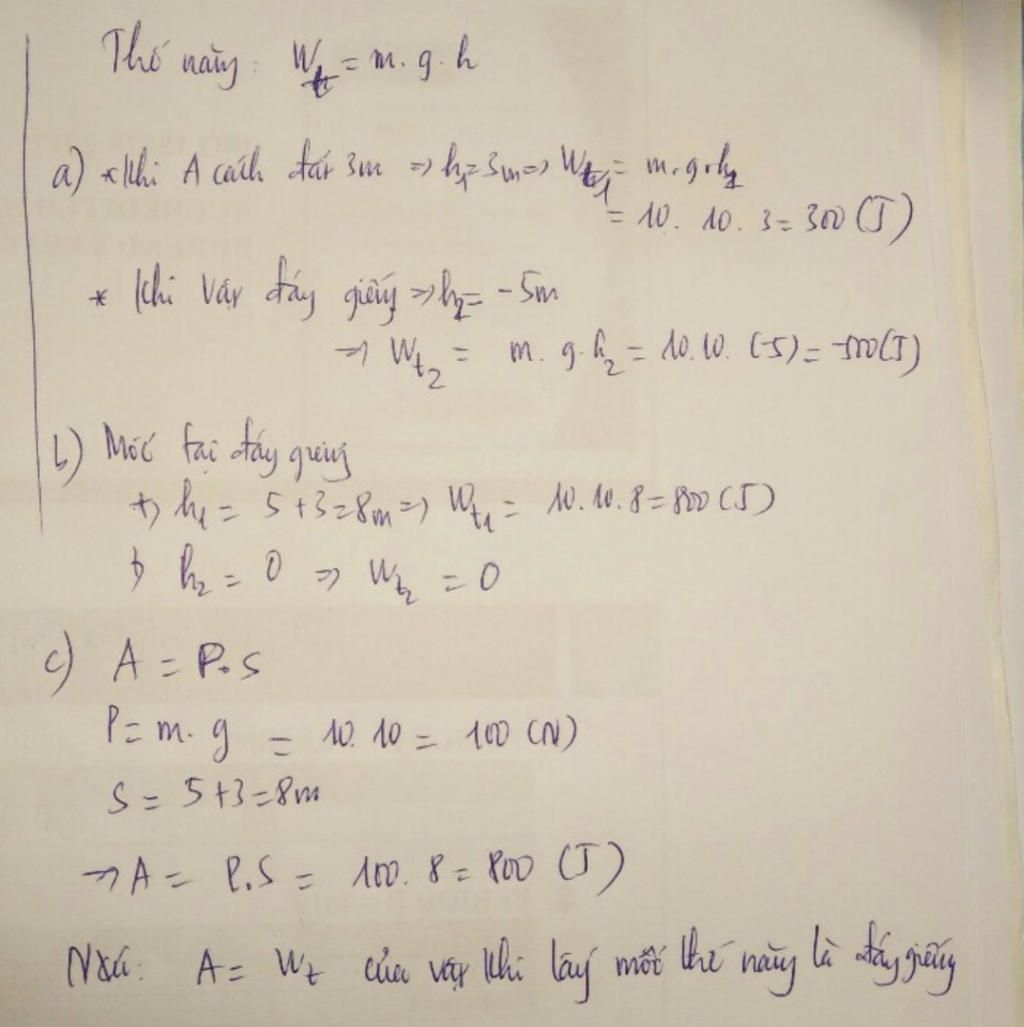 Thế năng: Wt = m.g.h
a) * Khi A cách đất 3m => h1=3m=> Wt1 = m.g.h1
= 10. 10. 3= 300 (J)
* Khi vật đáy giếng => h2= -5m
=> Wt2 = m. g.h2 = 10.10. (-5) = -500(J)
b) Mốc tại đáy giếng
+) h1 = 5+3=8m=> Wt1 = 10.10.8=800(J)
+) h2 = 0 => Wt2 = 0
c) A = P.s
P= m.g = 10.10 = 100 (N)
S = 5+3=8m
=> A = P.S = 100. 8 = 800 (J)
Nxét: A = Wt của vật khi lấy mốc thế năng là đáy giếng